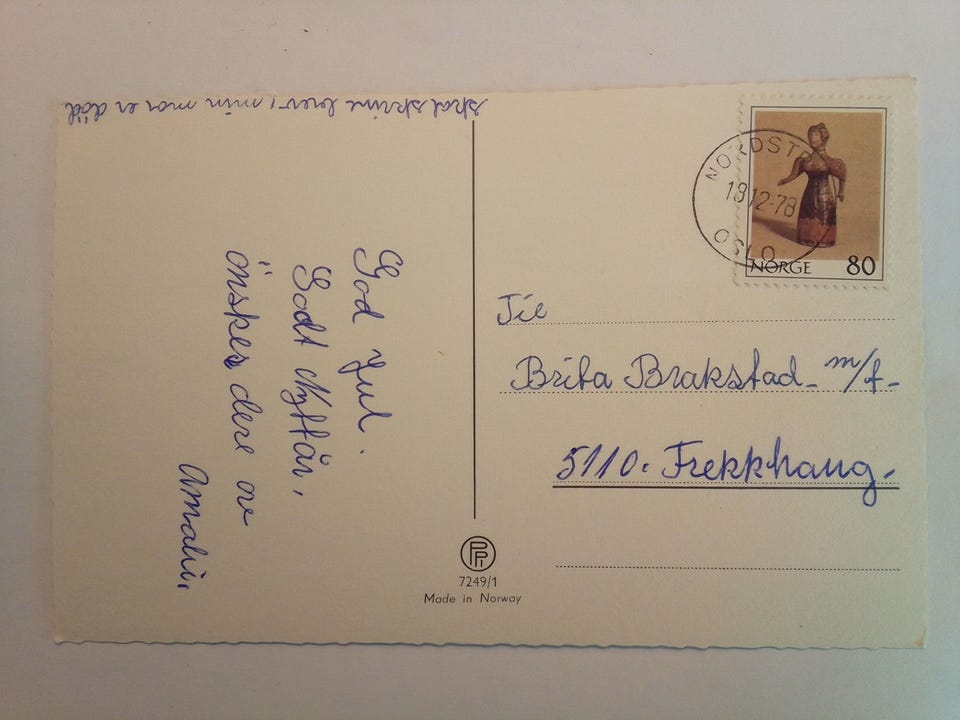 skal skrive brev, min mor er död
God Jul.
Godt Nyttår,
önskes dere av
Amalie,
NORDSTR
18 12-78
OSLO
NORGE 80
Til
Brita Brakstad - m/f -
5110. Frekkhaug.
PP
7249/1
Made in Norway